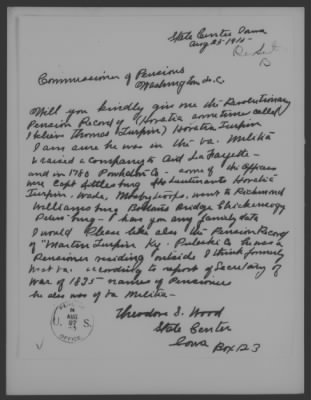 State Center Iowa
Aug 25 - 1911 -
Commissioner of Pensions
Washington D.C.
Will you kindly give me the Revolutionary
Pension Record of (Horatia sometime called
Thomas (Turpin) Horatia Turpin
I am sure he was in the Va. Militia
raised a company to Aid La Fayette -
and in 1780 Powhatan Co - some of the Officers
were Capt Littlebury Lieutenants Horatia
Turpin. troops. went to Richmond
Williamsburg Bottoms Bridge
Petersburg - have you any family data
I would Please like also the Pension Record
of "Martin Turpin Ky. Pulaski Co he was a
Pensioner residing outside I think formerly
West Va. according to report of Secretary of
War of 1835 - names of Pensioners
he also was of Va Militia -
Theodore S. Wood
State Center
Iowa Box 123
AUG
U. S.
OFFICE